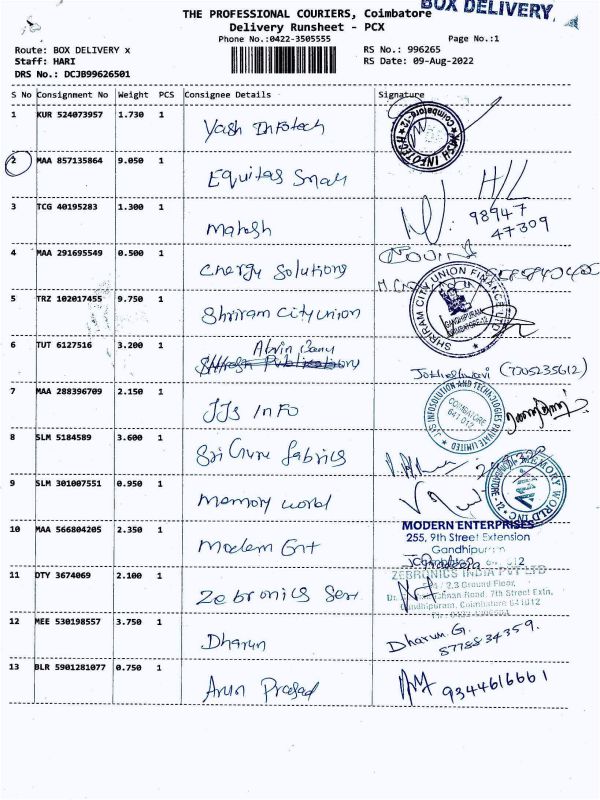 BOX DELIVERY
THE PROFESSIONAL COURIERS, Coimbatore
Delivery Runsheet - PCX
Phone No.:0422-3505555
Page No.:1
Route: BOX DELIVERY x
RS No.: 996265
Staff: HARI
RS Date: 09-Aug-2022
DRS No.: DCJB99626501
S No Consignment No Weight PCS Consignee Details Signature
1 KUR 524073957 1.730 1 Yash Infotech
2 MAA 857135864 9.050 1 Equitas Small
3 TCG 40195283 1.300 1 Mahesh 98947
47309
4 MAA 291695549 0.500 1 Energy Solutions
5 TRZ 102017455 9.750 1 Shriram City Union
SHRIRAM CITY UNION FINANCE LTD
GANDHIPURAM
COIMBATORE-12
6 TUT 6127516 3.200 1
(7305235612)
7 MAA 288396709 2.150 1 JJs Info
JJS INFOSOLUTION AND TECHNOLOGIES PRIVATE LIMITED
COIMBATORE
641 012
8 SLM 5184589 3.600 1 Sri Guru fabrics
9 SLM 301007551 0.950 1 Memory world
MEMORY WORLD INC
10 MAA 566804205 2.350 1 Modern Ent
MODERN ENTERPRISES
255, 9th Street Extension
Gandhipuram
11 DTY 3674069 2.100 1 Zebronics Serv
ZEBRONICS INDIA PVT LTD
2.3 Ground Floor,
Road, 7th Street Extn,
Gandhipuram, Coimbatore 641012
12 MEE 530198557 3.750 1 Dharun Dharun.G.
8778834359.
13 BLR 5901281077 0.750 1 Arun Prasad 9344616661